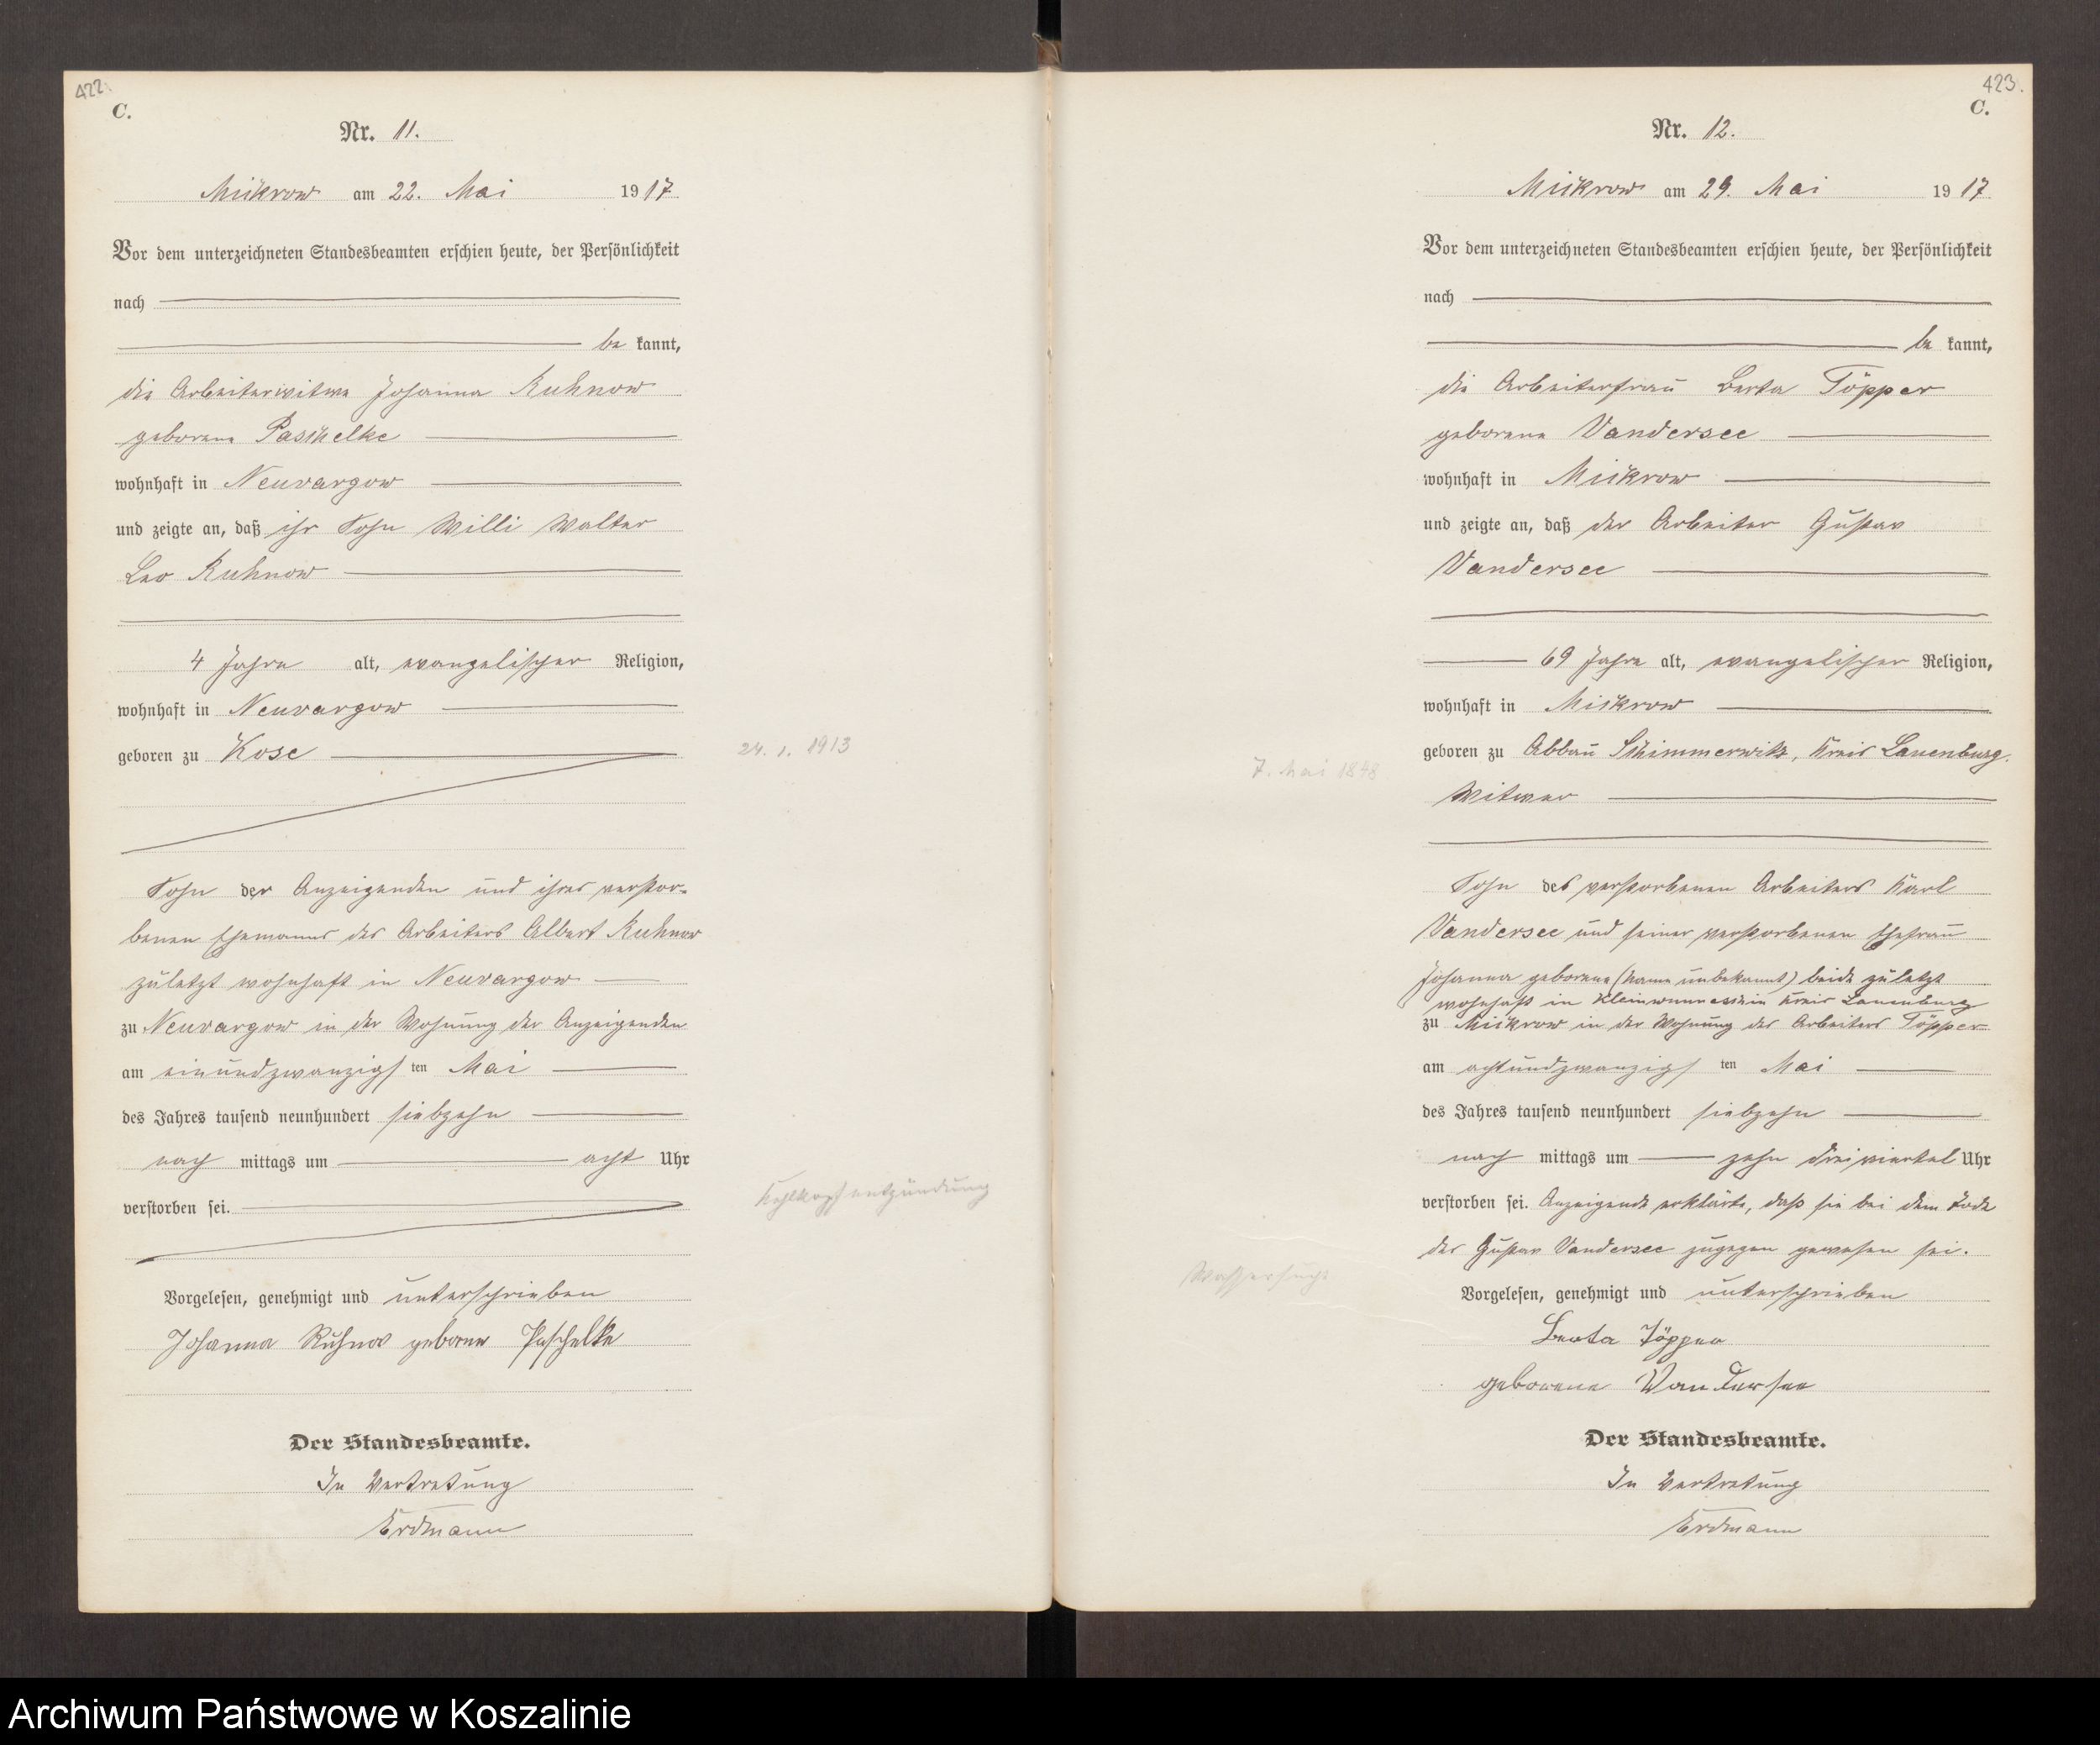 422.
C.
Nr. 11.
Mickrow am 22. Mai 1917
Vor dem unterzeichneten Standesbeamten erschien heute, der Persönlichkeit
nach
be kannt,
die Arbeiterwitwe Johanna Kuhnow
geborene Paschelke
wohnhaft in Neuvargow
und zeigte an, daß ihr Sohn Willi Walter
Leo Kuhnow
4 Jahre alt, evangelischer Religion,
wohnhaft in Neuvargow
geboren zu Kose
24. 1. 1913
Sohn der Anzeigenden und ihres verstor-
benen Ehemannes des Arbeiters Albert Kuhnow
zuletzt wohnhaft in Neuvargow
zu Neuvargow in der Wohnung der Anzeigenden
am einundzwanzigsten Mai
des Jahres tausend neunhundert siebzehn
nach mittags um acht Uhr
verstorben sei.
Kehlkopfentzündung
Vorgelesen, genehmigt und unterschrieben
Johanna Kuhnow geborene Paschelke
Der Standesbeamte.
In Vertretung
Erdmann
423.
C.
Nr. 12.
Mickrow am 29. Mai 1917
Vor dem unterzeichneten Standesbeamten erschien heute, der Persönlichkeit
nach
be kannt,
die Arbeiterfrau Berta Töpper
geborene Vandersee
wohnhaft in Mickrow
und zeigte an, daß der Arbeiter Gustav
Vandersee
69 Jahre alt, evangelischer Religion,
wohnhaft in Mickrow
geboren zu Abbau Schimmerwitz, Kreis Lauenburg.
7. Mai 1848
Witwer
Sohn des verstorbenen Arbeiters Karl
Vandersee und seiner verstorbenen Ehefrau
Johanna geborene (Name unbekannt) beide zuletzt
wohnhaft in Kleinwunneschin Kreis Lauenburg
zu Mickrow in der Wohnung des Arbeiters Töpper
am achtundzwanzigsten Mai
des Jahres tausend neunhundert siebzehn
nach mittags um zehn dreiviertel Uhr
verstorben sei. Anzeigende erklärte, daß sie bei dem Tode
des Gustav Vandersee zugegen gewesen sei.
Wassersucht
Vorgelesen, genehmigt und unterschrieben
Berta Töpper
geborene Vandersee
Der Standesbeamte.
In Vertretung
Erdmann
Archiwum Państwowe w Koszalinie